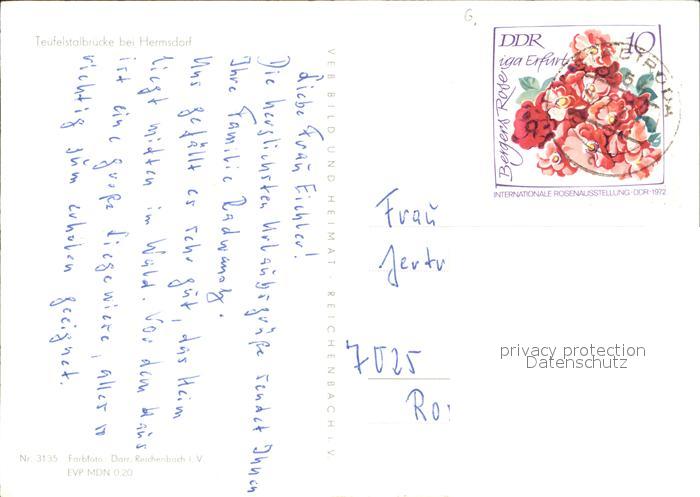 Teufelstalbrücke bei Hermsdorf
Liebe Frau Eichler!
Die herzlichsten Urlaubsgrüße sendet Ihnen
Ihre Familie
Uns gefällt es sehr gut, das Heim
liegt mitten im Wald. Vor dem Haus
ist eine große Liegewiese, alles so
richtig zum erholen geeignet.
Nr. 3135 Farbfoto: Darr, Reichenbach i. V.
EVP MDN 0,20
VEB BILD UND HEIMAT · REICHENBACH i. V.
G.
DDR 10
iga Erfurt
Bergers Rose
INTERNATIONALE ROSENAUSSTELLUNG · DDR · 1972
Frau
7025
privacy protection
Datenschutz